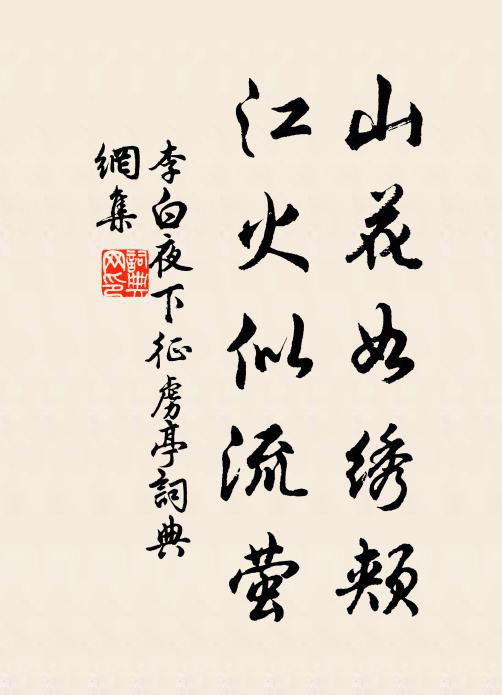 山花如绣颊
江火似流萤
李白夜下征虏亭詞典
網集
詞典
网印